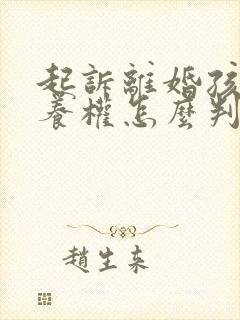 起訴離婚孩
養權怎麼判
趙生來